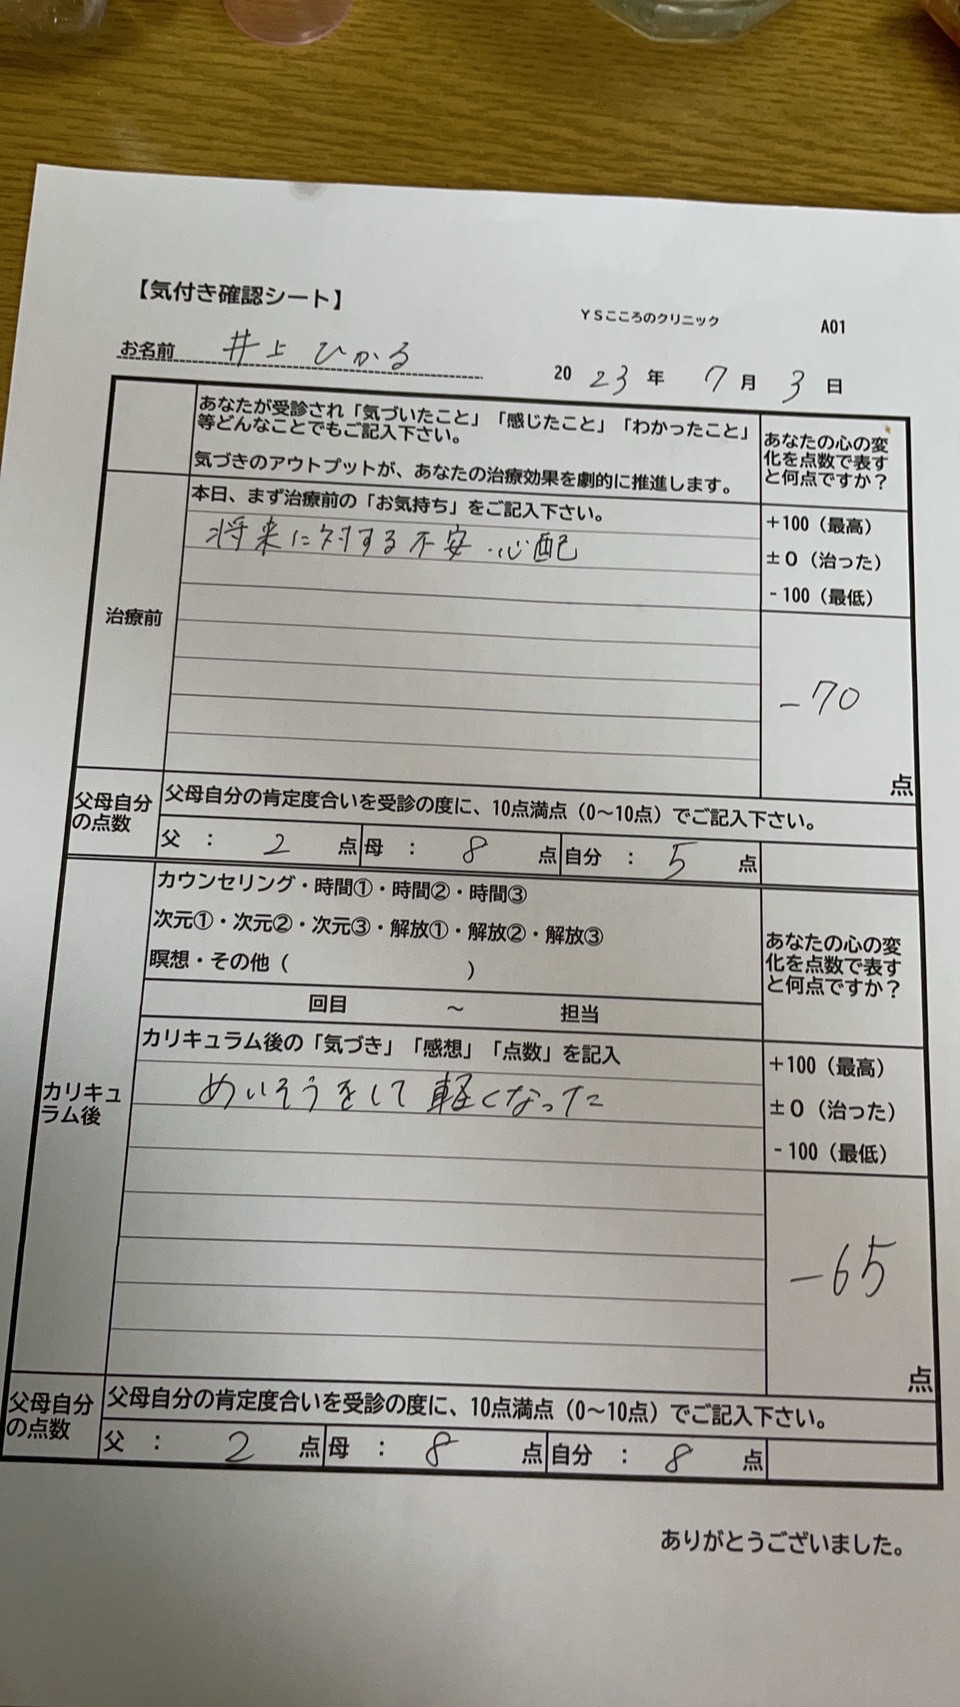 【気付き確認シート】
YSこころのクリニック
A01
お名前 井上 ひかる
2023年 7月 3日
あなたが受診され「気づいたこと」「感じたこと」「わかったこと」
等どんなことでもご記入下さい。
気づきのアウトプットが、あなたの治療効果を劇的に推進します。
あなたの心の変
化を点数で表す
と何点ですか？
治療前
本日、まず治療前の「お気持ち」をご記入下さい。
将来に対する不安・心配
+100（最高）
±0（治った）
-100（最低）
-70
点
父母自分
の点数
父母自分の肯定度合いを受診の度に、10点満点（0～10点）でご記入下さい。
父 ： 2 点 母 ： 8 点 自分 ： 5 点
カリキュ
ラム後
カウンセリング・時間①・時間②・時間③
次元①・次元②・次元③・解放①・解放②・解放③
瞑想・その他（ ）
回目 ～ 担当
あなたの心の変
化を点数で表す
と何点ですか？
カリキュラム後の「気づき」「感想」「点数」を記入
めいそうをして軽くなった
+100（最高）
±0（治った）
-100（最低）
-65
点
父母自分
の点数
父母自分の肯定度合いを受診の度に、10点満点（0～10点）でご記入下さい。
父 ： 2 点 母 ： 8 点 自分 ： 8 点
ありがとうございました。